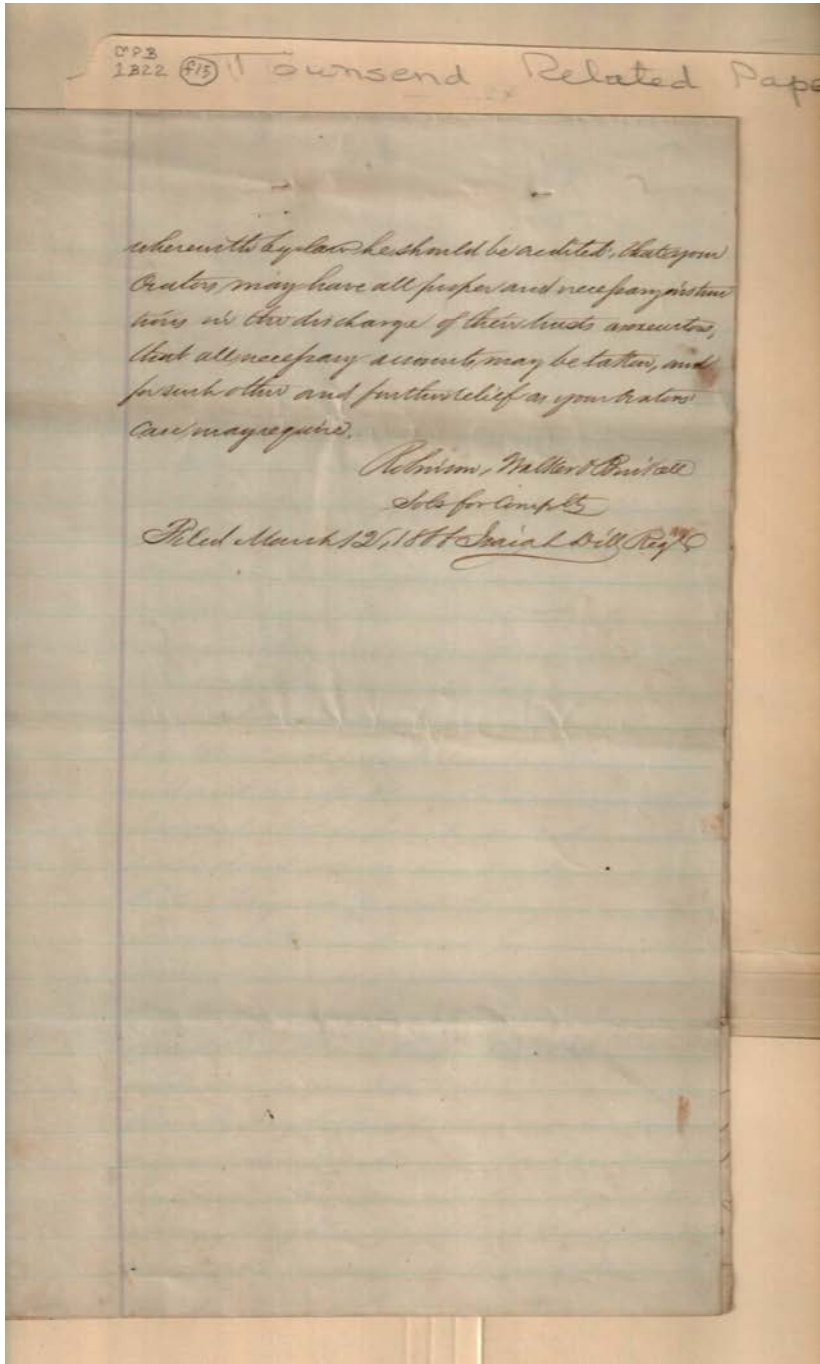 CPB
1B22 f15 Townsend Related Pape
wherewith by law, he should be credited, that your
Orators, may have all proper and necessary instruc
tions in the discharge of their trusts as executors,
that all necessary accounts, may be taken, and
for such other and further relief as your Orators'
case may require.
Robinson, Walker &
Sols for Complts
Filed March 12, Isaiah Dill, Regr